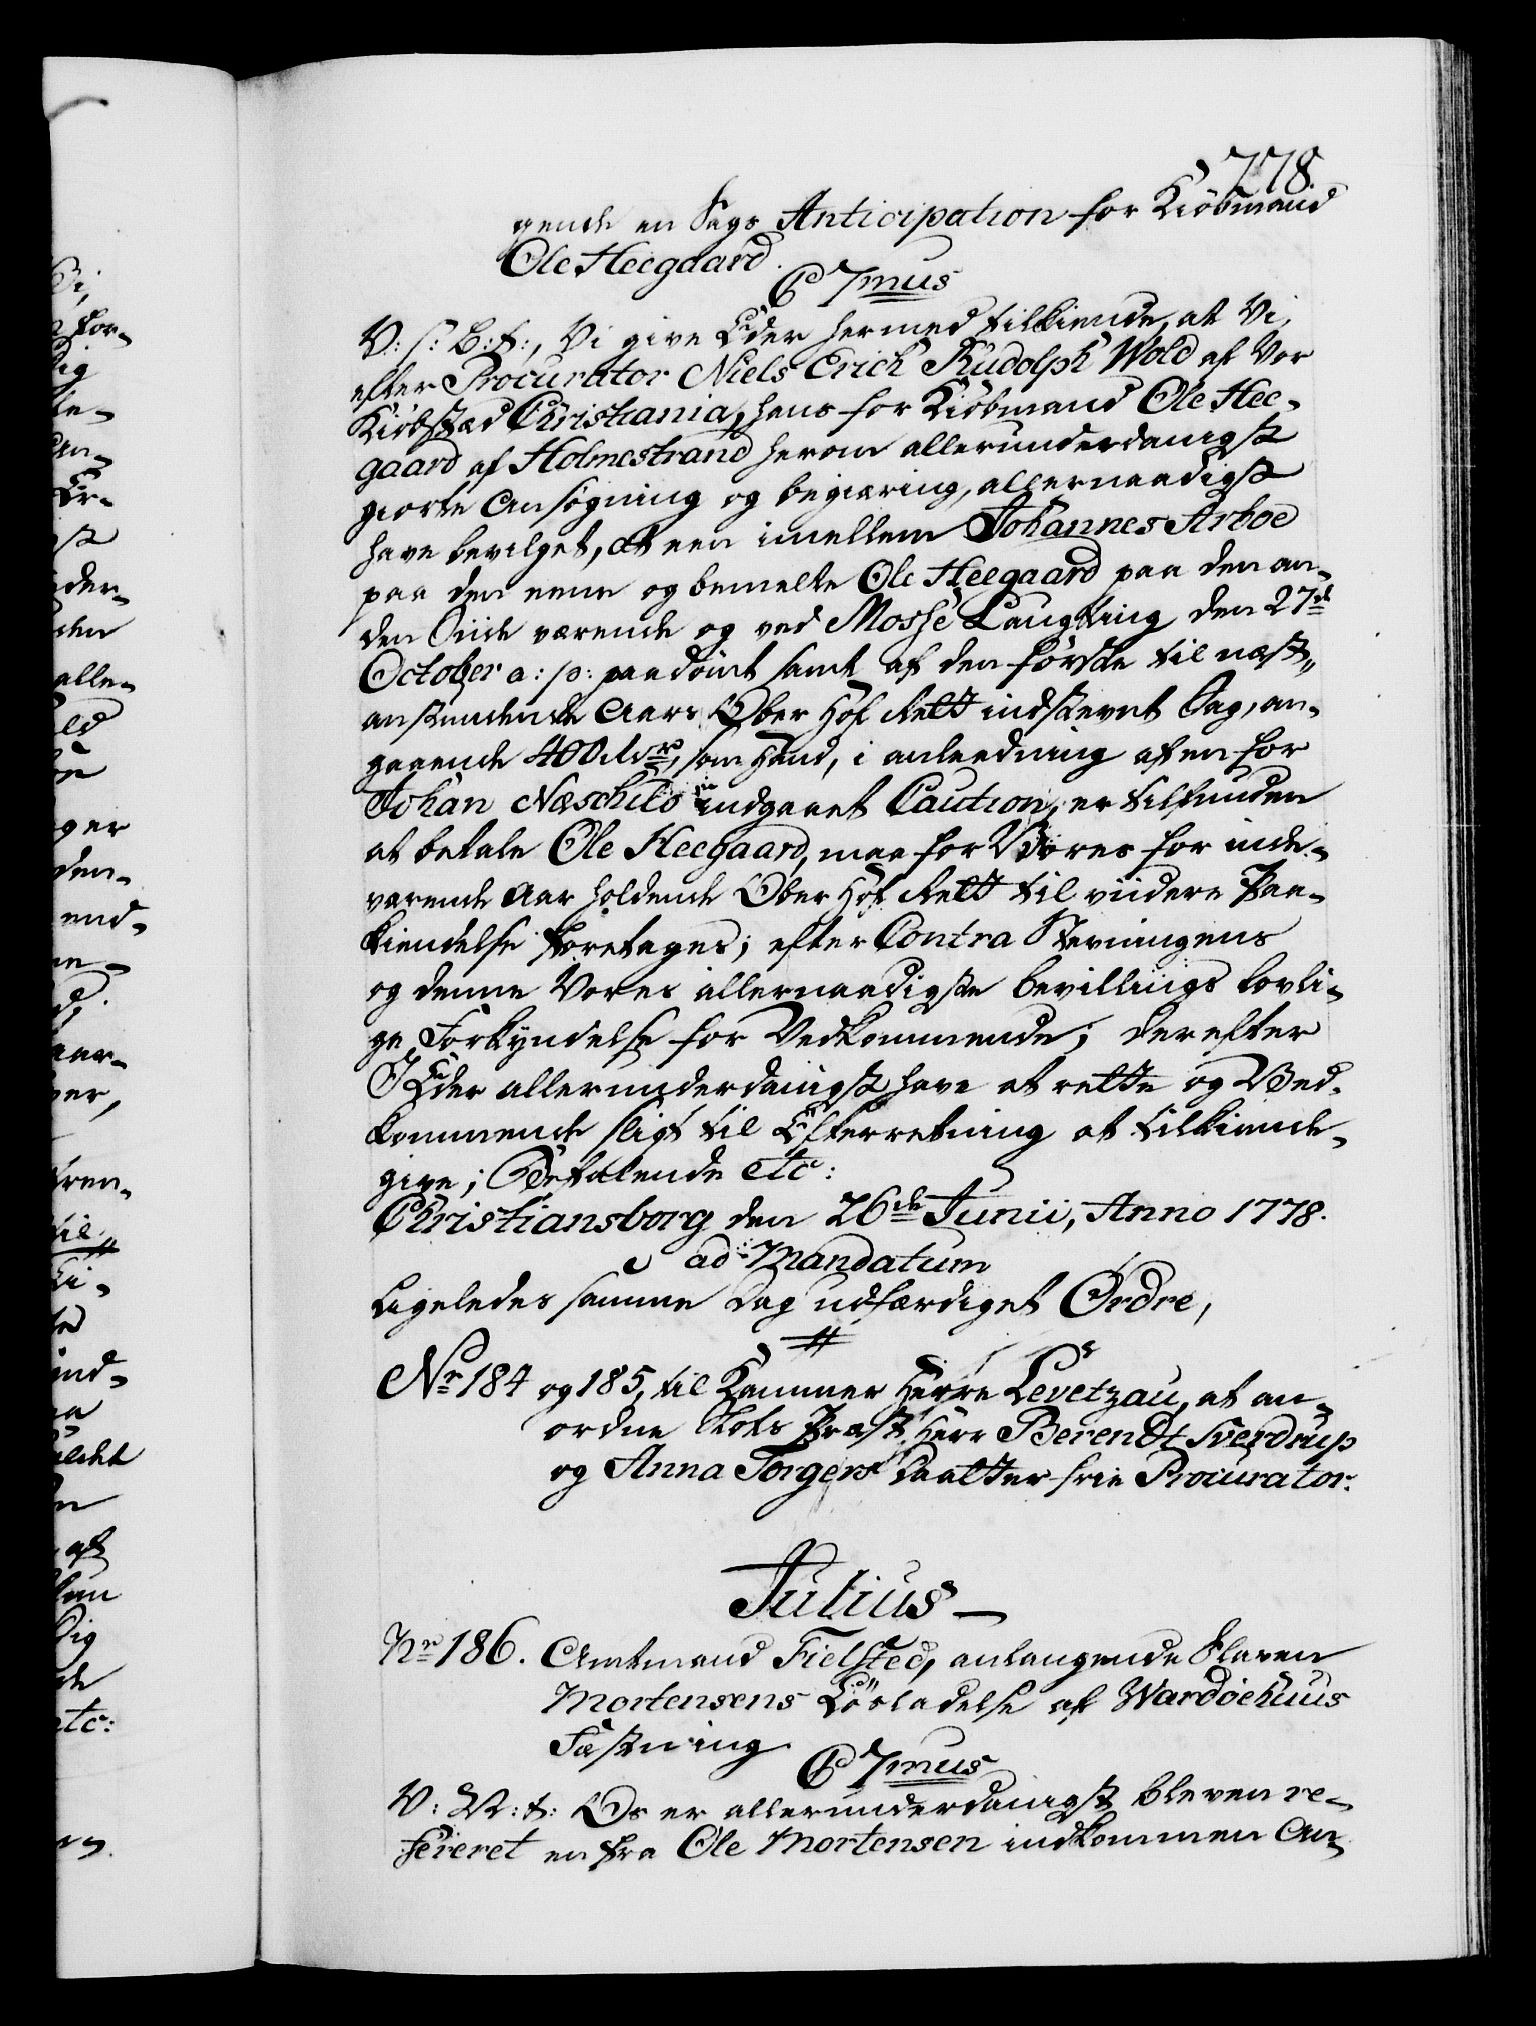 778.
gende en Sags Anticipation for Kiöbmand
Ole Heegaard.
C 7mus
V: s: B: t:, Vi give Eder hermed tilkiende, at Vi,
efter Procurator Niels Erich Rudolph Wold af Vor
Kiöbstæd Christiania, hans for Kiöbmand Ole Hee-
gaard af Holmestrand herom allerunderdanigst
giorte Ansögning og begiæring, allernaadigst
have bevilget, at een imellem Johannes Arboe
paa den eene og bemelte Ole Heegaard paa den an-
den Siide værende og ved Mosse Laugting den 27de
October a: p: paadömt samt af den förste til næst-
anstundende Aars Ober Hof Rett indstevnt Sag, an-
gaaende 400 rdr, som hand, i anleedning af en for
Johan Næschilds indgaaet Caution, er tilfunden
at betale Ole Heegaard, maa for Vores for inde-
værende Aar holdende Ober Hof Rett til viidere Paa-
kiendelse foretages; efter Contra Stevningens
og denne Vores allernaadigste bevillings lovli-
ge Forkyndelse for Vedkommende; derefter
I Eder allerunderdanigst have at rette og Ved-
kommende sligt til Efterretning at tilkiende-
give; Befalende etc:
Christiansborg den 26de Junii, Anno 1778.
ad Mandatum
Ligeledes samme Dag udfærdiget Ordre,
Nr 184 og 185, til Kammer Herre Levetzau, at an-
ordne Præst Herr Berendt Sverdrup
og Anna Torgers Daatter frie Procurator.
Julius
Nr 186. Amtmand Fielsted, anlangende Slaven
Mortensens Lösladelse af Wardöehuus
Fæstning
C 7mus
V: G: t: Os er allerunderdanigst bleven re-
fereret en fra Ole Mortensen indkommen An-